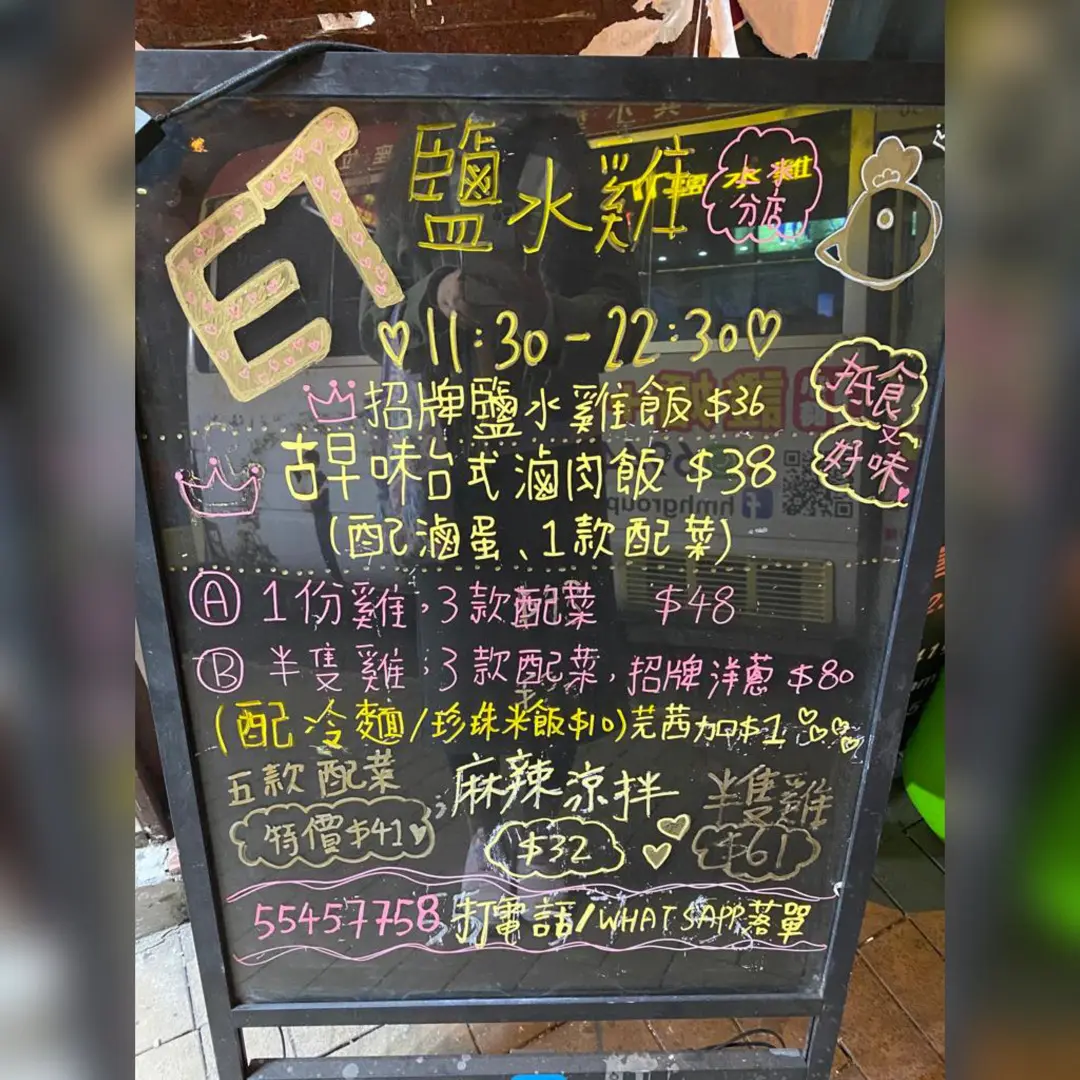 ET 鹽水雞
分店
11:30-22:30
招牌鹽水雞飯 $36
抵食又好味
古早味台式滷肉飯 $38
(配滷蛋、1款配菜)
A 1份雞,3款配菜 $48
B 半隻雞,3款配菜,招牌洋蔥 $80
(配冷麵/珍珠米飯$10)芫茜加$1
五款配菜 特價$41
麻辣涼拌 $32
半隻雞 $61
55457758 打電話/WHATSAPP落單
hmhgroup